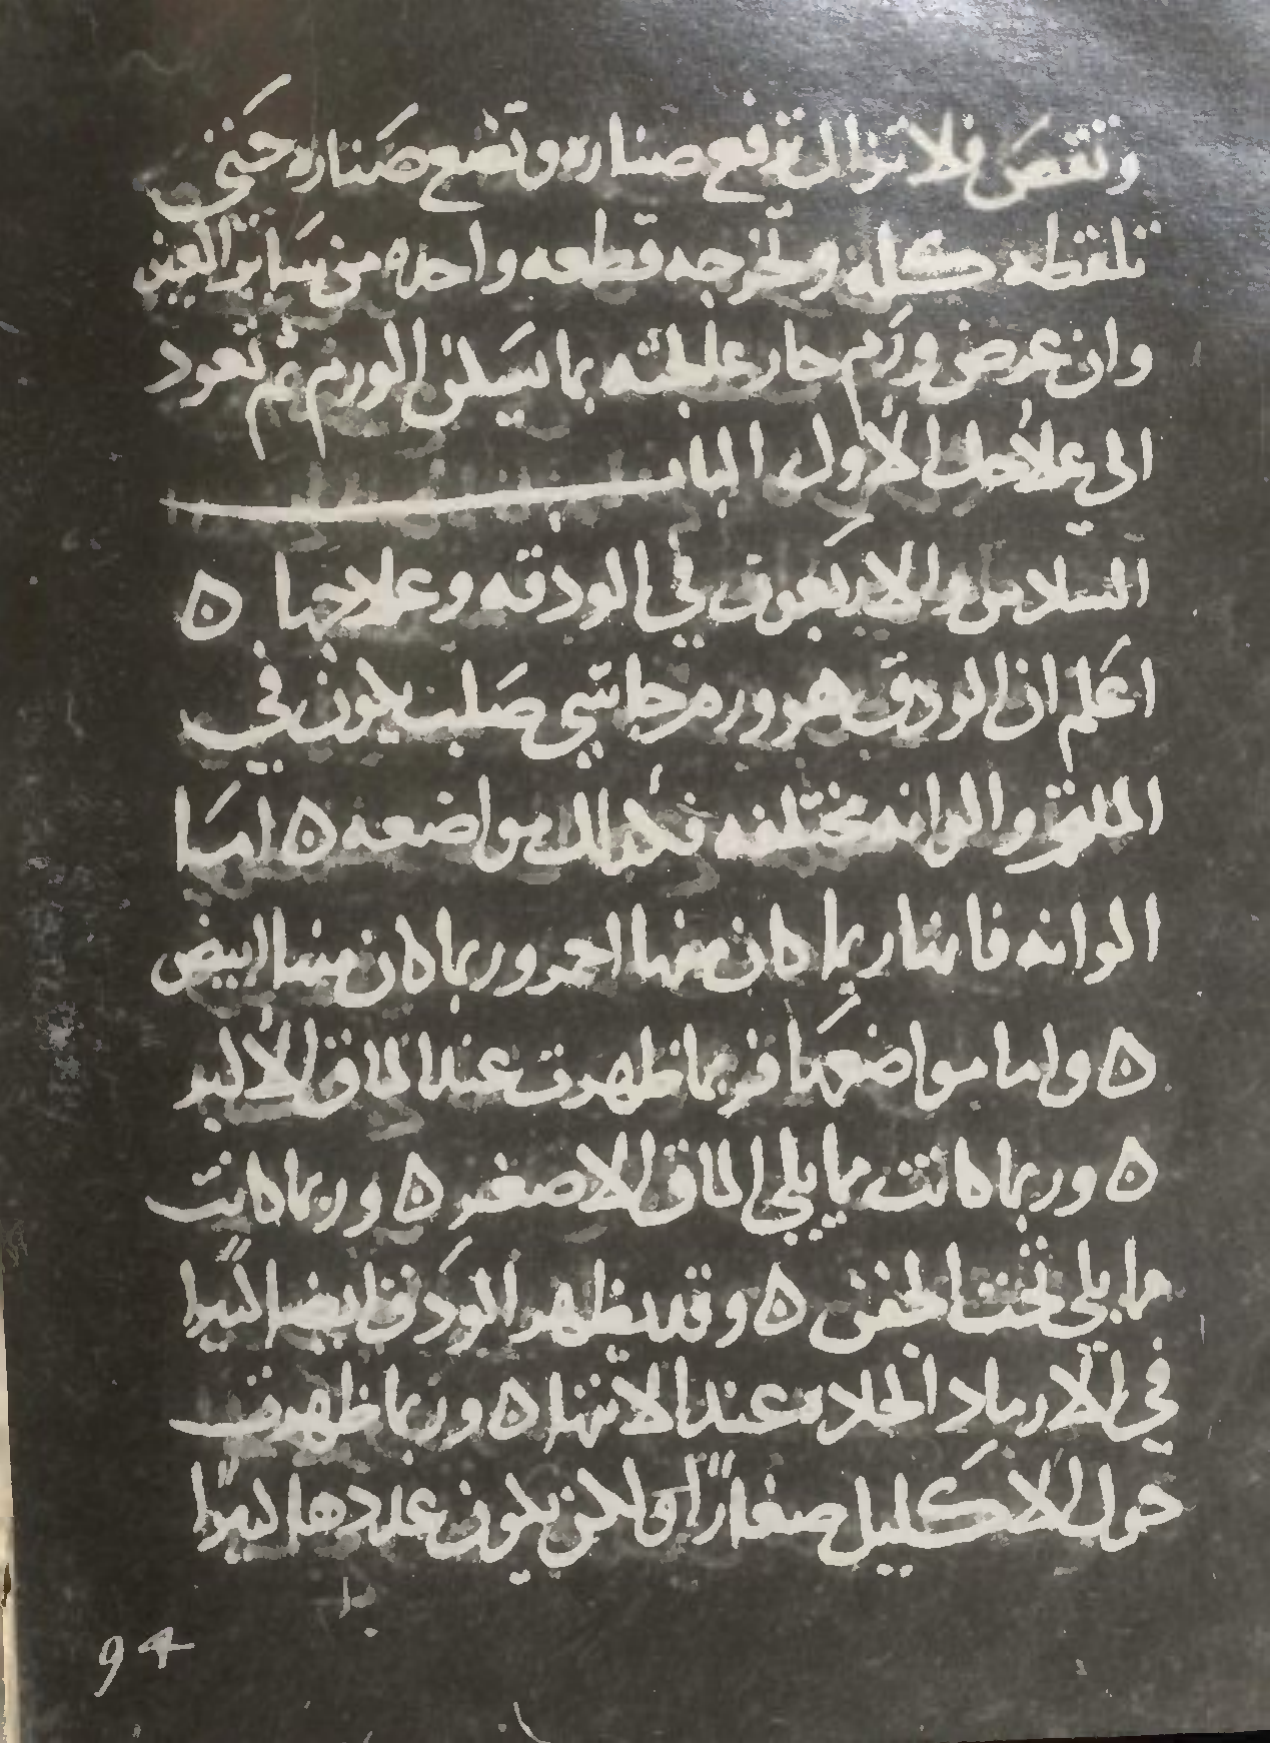 وتقص فلا تزال ترفع صناره وتضع صناره حتى
تلتقطه كله وتخرجه قطعه واحده من ساير العين
وان عرض ورم حار عالجته بما يسكن الورم ثم تعود
الى علاجك الأول الباب
السادس والاربعون في الودقه وعلاجها ه
اعلم ان الودق هو ورم جاسي صلب يكون في
الملتحم والوانه مختلفه فكدلك مواضعه ه اما
الوانه فانها ربما كان منها احمر وربما كان منها ابيض
ه واما مواضعها فربما ظهرت عند الماق الأكبر
ه وربما كانت مما يلي الماق الاصغر ه وربما كانت
مما يلي تحت الجفن ه وقد يظهر الودق ايضا كثيرا
في الارماد الحاده عند الانتها ه وربما ظهرت
حول الاكليل صغارًا ولكن يكون عددها كثيرًا
94